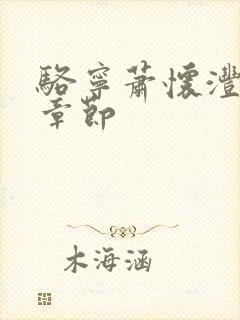 駱寧蕭懷灃
章節
木海涵